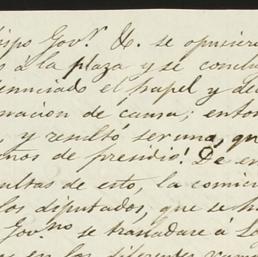 ispo Gov.r &c. se opusiera
s á la plaza y se conclu
enunciado el papel y de
macion de causa; enton
, y resultó, ser una, qu
nos de presidio! De en
ultas de esto, la comici
los diputados, que se h
Gov.no se trasladare á L
en los diferentes